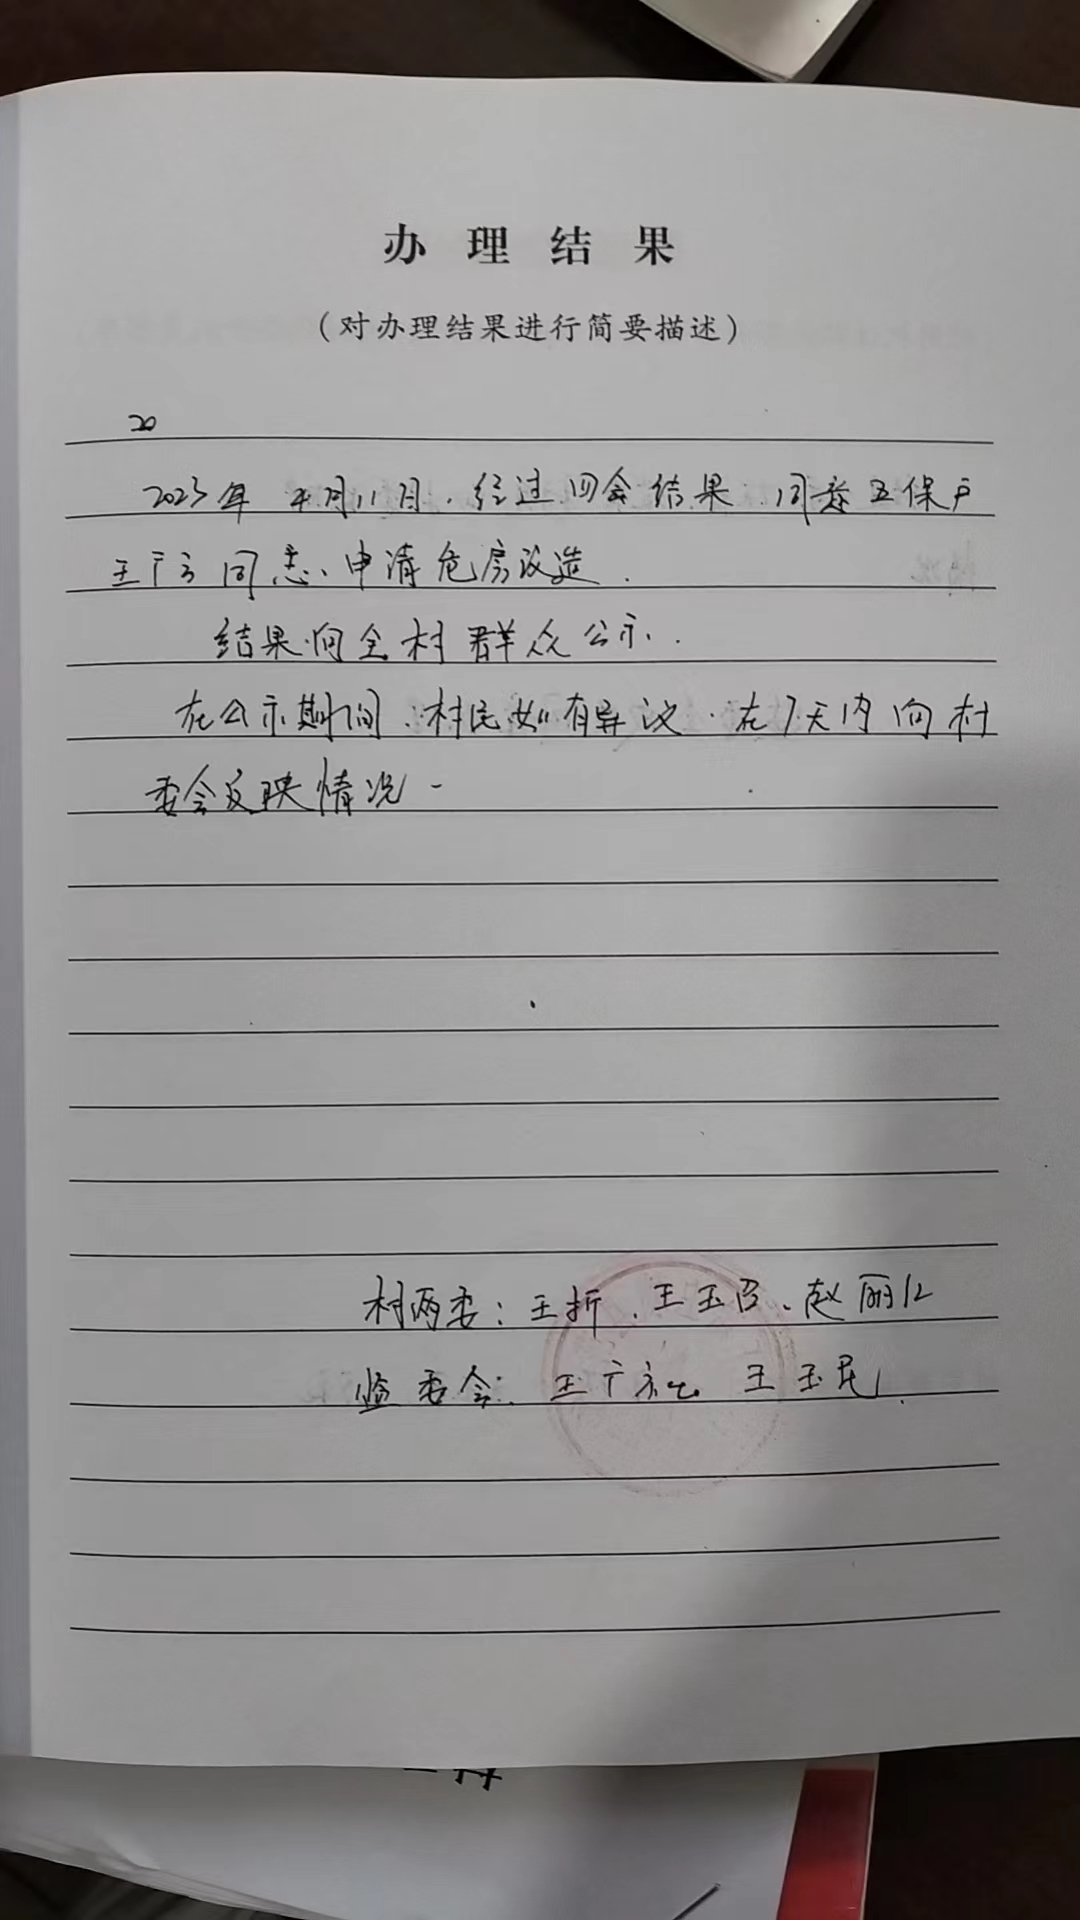 办理结果
（对办理结果进行简要描述）
20
2023年4月11月.经过四会结果:同意五保户
王广方同志、申请危房改造.
结果向全村群众公示.
在公示期间:村民如有异议.在7天内向村
委会反映情况-
村两委:王折、王玉臣、赵丽仁
监委会:王广礼 王玉民